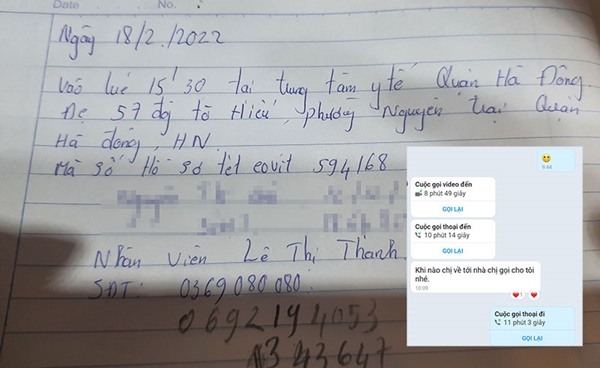 Date
No.
Ngày 18/2./2022
Vào lúc 15'30 tại trung tâm y tế Quận Hà Đông.
Đc 57 đg tô Hiếu, phường Nguyễn trại Quận
Hà đông, HN.
Mà số Hồ sơ tét covit 594168
Nhân viên Lê Thị Thanh.
SĐT: 0369 080 080.
0692194053
343647
9:44
Cuộc gọi video đến
8 phút 49 giây
GỌI LẠI
Cuộc gọi thoại đến
10 phút 14 giây
GỌI LẠI
Khi nào chị về tới nhà chị gọi cho tôi
nhé.
10:09
1
Cuộc gọi thoại đi
11 phút 3 giây
GỌI LẠI